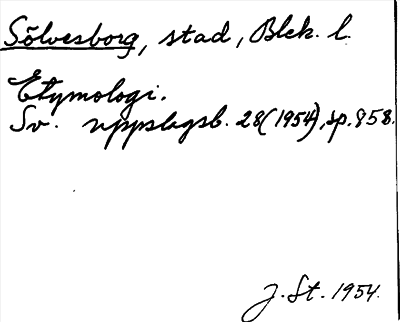 Sölvesborg, stad, Blek. l.
Etymologi.
Sv. uppslagsb. 28(1954), sp. 858.
J. St. 1954.